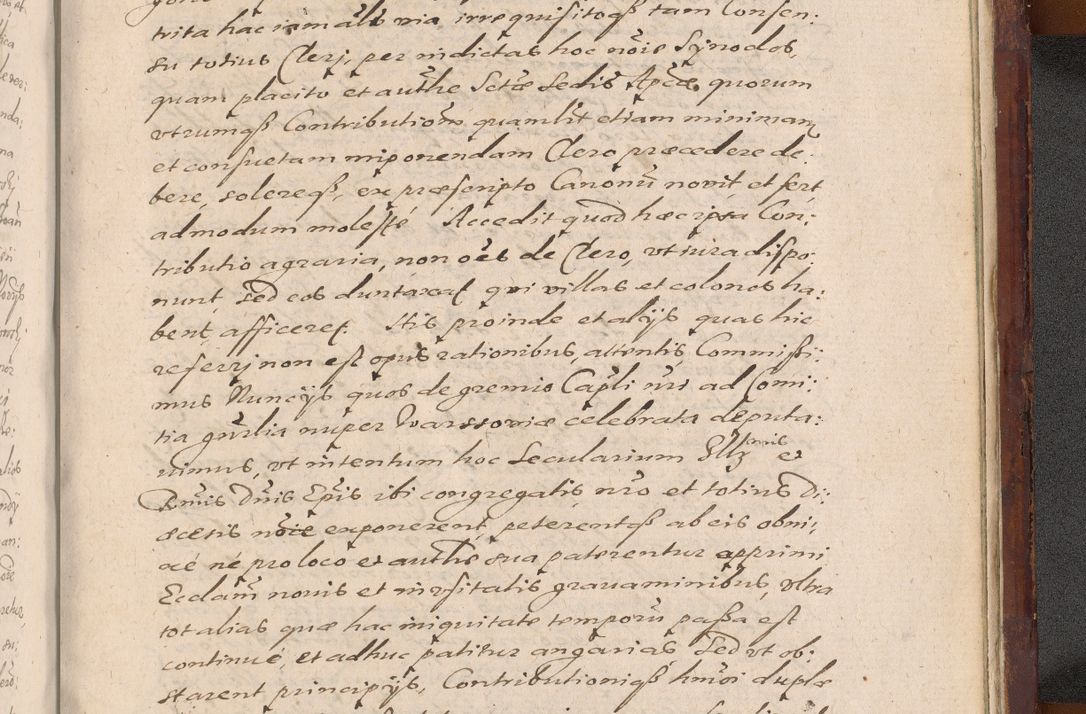 trita hac iam aliis via, irrequisitoq3 tam Consen:
su totius Clerj, per indictas hoc nõie Synodos,
quam placito et authe Sctæ Sedis Apcæ, quorum
vtrumq3 Contributioni quamlit etiam minimam
et consuetam imponendam Clero præcedere de:
bere, solereq3, ex præscripto Canonũ novit, et fert
admodum molesté Accedit quod hæc ipsa Con:
tributio agraria, non oẽs de Clero, vt iura dispo:
nunt, sed eos duntaxat qvi villas et colonos ha:
bent, afficeret. Istis proinde et alijs quas hic
referrj non est opus rationibus, attentis, Commissi:
mus Nuncijs quos de gremio Capli nri ad Comi:
tia gnrlia nuper Warssoviæ celebrata deputa:
vimus, vt intentum hoc Secularium Illmis et
Rmis Dnis Epis ibi congregatis nro et totius Di:
æcesis nõie exponerent, peterentq3 ab eis obni:
xé né pro loco et authe sua paterentur opprimi
Ecclam novis et invsitatis gravaminibus, vltra
tot alias quæ hac iniquitate temporũ passa est
continué, et adhuc patitur angarias Sed vt ob:
starent principijs, Contributioniq3 hmoi duplæ